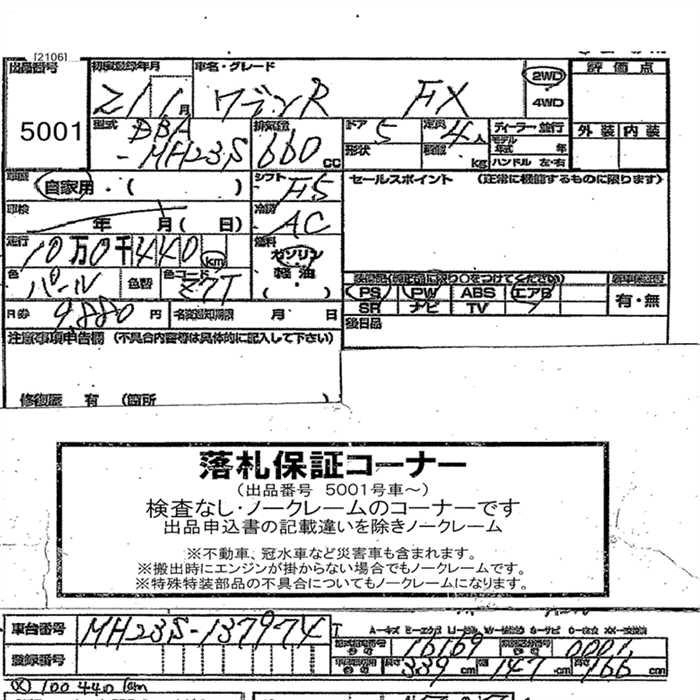 [2106]
出品番号 初度登録年月 車名・グレード 評価点
5001 21 1月 ワゴンR FX 2WD 4WD
型式 DBA-MH23S 排気量 660cc ドア 5 形状 定員 4人 積載 kg ディーラー 並行 モデル年式 年 ハンドル 左・右 外装 内装
車歴 自家用・( ) シフト F5 セールスポイント (正常に機能するものに限ります)
車検 年 月( 日) 冷房 AC
走行 10万0千440km 燃料 ガソリン 軽油 ( ・ )
色 パール 色替 色コード Z7T
PS PW ABS エアB 有・無
SR ナビ TV
月券 9,880円 名変通知期限 月 日 後日品
注意事項申告欄 (不具合内容等は具体的に記入して下さい)
修復歴 有 (箇所 )
落札保証コーナー
(出品番号 5001号車~)
検査なし・ノークレームのコーナーです
出品申込書の記載違いを除きノークレーム
※不動車、冠水車など災害車も含まれます。
※搬出時にエンジンが掛からない場合でもノークレームです。
※特殊特装部品の不具合についてもノークレームになります。
車台番号 MH23S-137974
16169 0001
登録番号 長さ 339cm 幅 147cm 高さ 166cm
100440km